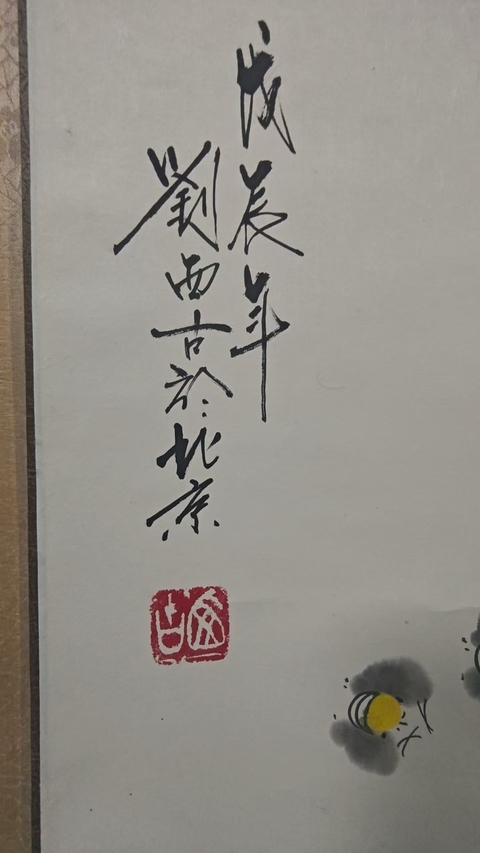 戊辰年
劉西古於北京
西古